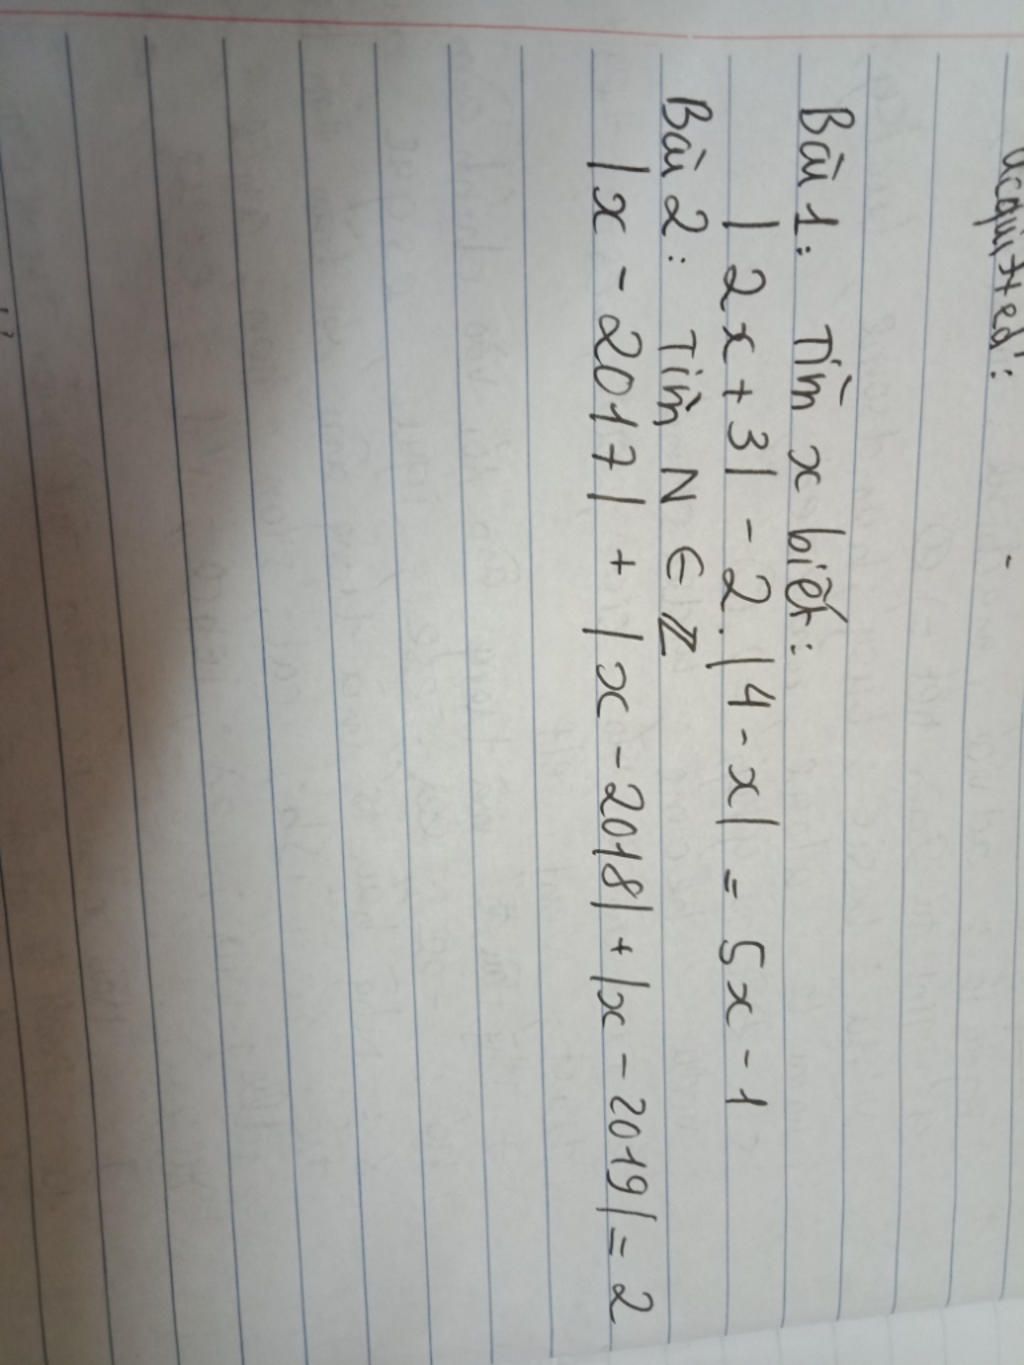 acquitted:
Bài 1: Tìm x biết:
| 2x + 3| - 2. |4 - x| = 5x - 1
Bài 2: Tìm N ∈ Z
|x - 2017| + |x - 2018| + |x - 2019| = 2